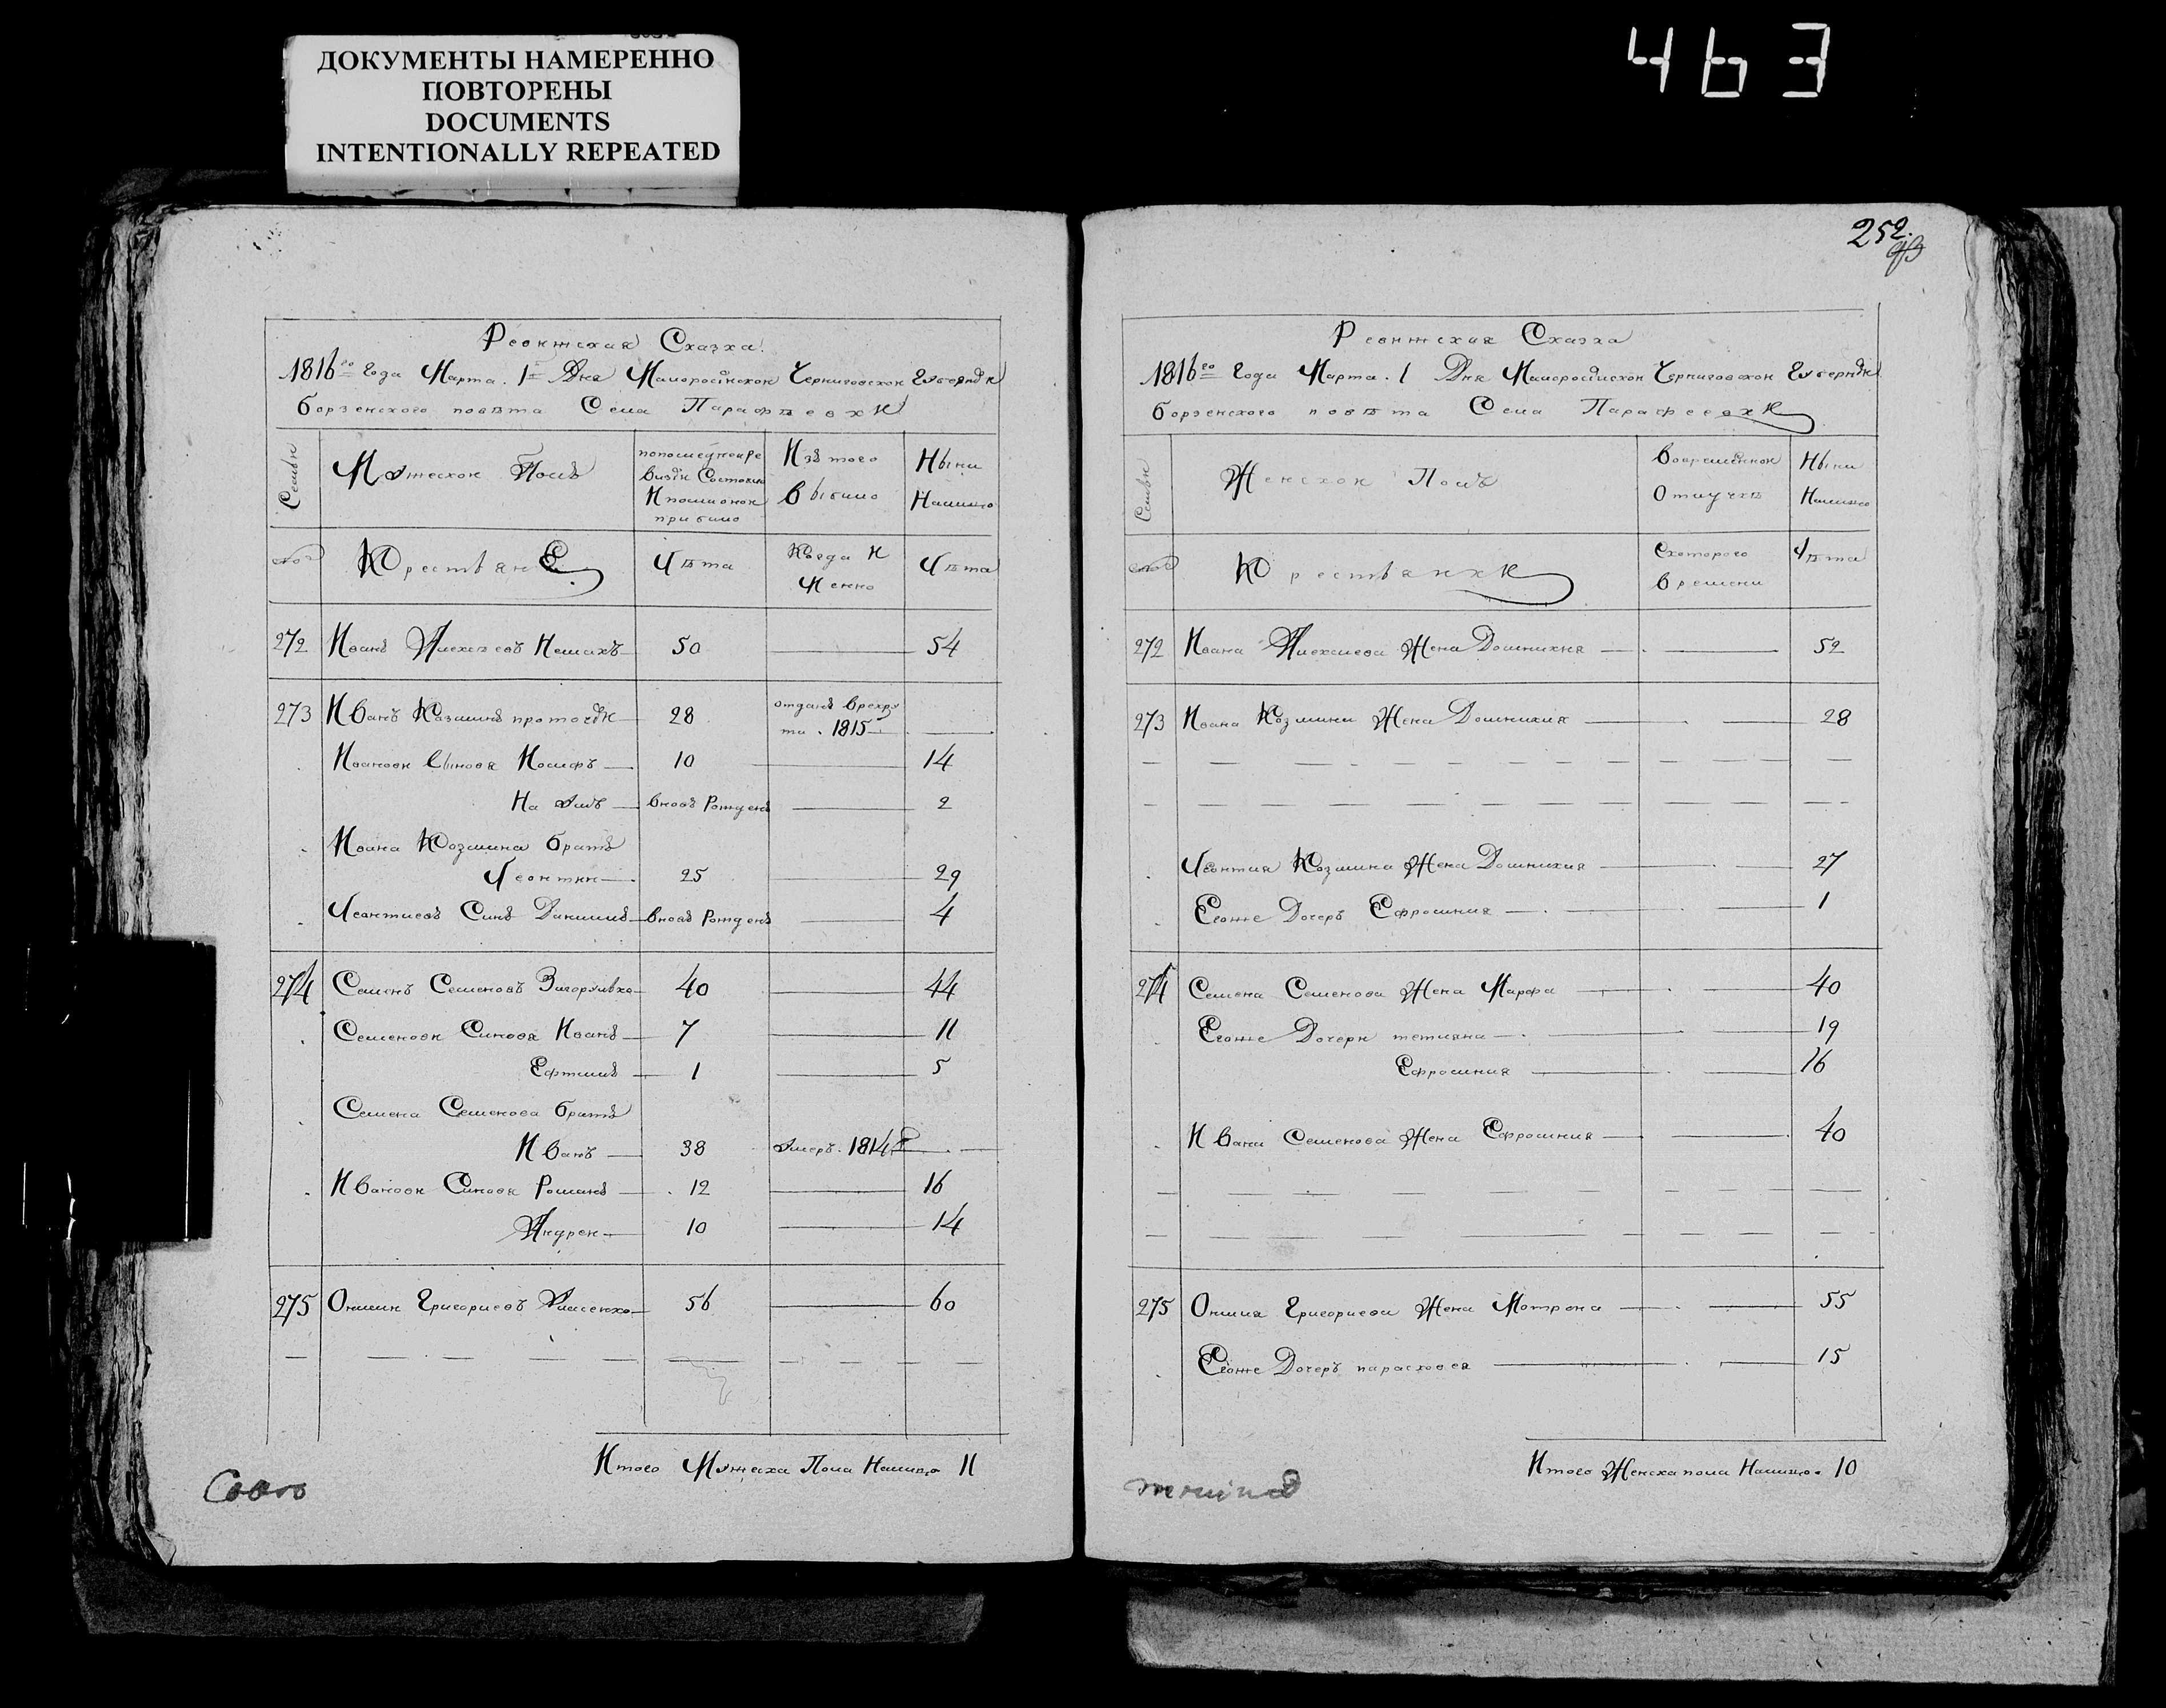 ДОКУМЕНТЫ НАМЕРЕННО
ПОВТОРЕНЫ
DOCUMENTS
INTENTIONALLY REPEATED
463
Ревижская Сказка
1816го Года Марта. 1 Дня Малоросийской Черниговской Губерній
борзенского повѣта Села Парафѣевки
Семьи
Мужеской Полъ
попоследней ре
визіи Состояли
И послѣоной
прибило
Изъ того
Выбило
Ныни
Налицо
№
КрестьянЕ
Лѣта
Когда И
Менно
Лѣта
272 Иванъ Алексѣевъ 50 54
273 Иванъ Козминъ 28 отданъ Врекру
та. 1815
Ивановы Сыновя Иосифъ 10 14
Наумъ Вновъ Рожденъ 2
Ивана Козмина братъ
Леонтии 25 29
Леонтиевъ Синъ Данилъ Вновъ Рожденъ 4
274 Семенъ Семеновъ Загорулько 40 44
Семеновы Синовя Иванъ 7 11
Ефтимъ 1 5
Семена Семенова братъ
Иванъ 38 Умеръ. 1814
Ивановы Синовя Романъ 12 16
Андреи 10 14
275 Григориевъ 56 60
Итого Мужеска Пола Налицо 11
252.
Ревижская Сказка
1816го Года Марта. 1 Дня Малоросийской Черниговской Губерній
борзенского повѣта Села Парафеевки
Семьи
Женской Полъ
Вовременной
Отлучкѣ
Ныни
Налицо
№
Крестьянки
Скоторого
Времени
Лѣта
272 Ивана Алексиева Жена Домникия 52
273 Ивана Козмини Жена Домникия 28
Леонтия Козмина Жена Домникия 27
Егоже Дочеръ Ефросиния 1
274 Семена Семенова Жена Марфа 40
Егоже Дочери тетияна 19
Ефросиния 16
Ивана Семенова Жена Ефросиния 40
275 Григориева Жена Мотрона 55
Егоже Дочеръ парасковея 15
Итого Женска пола Налицо 10